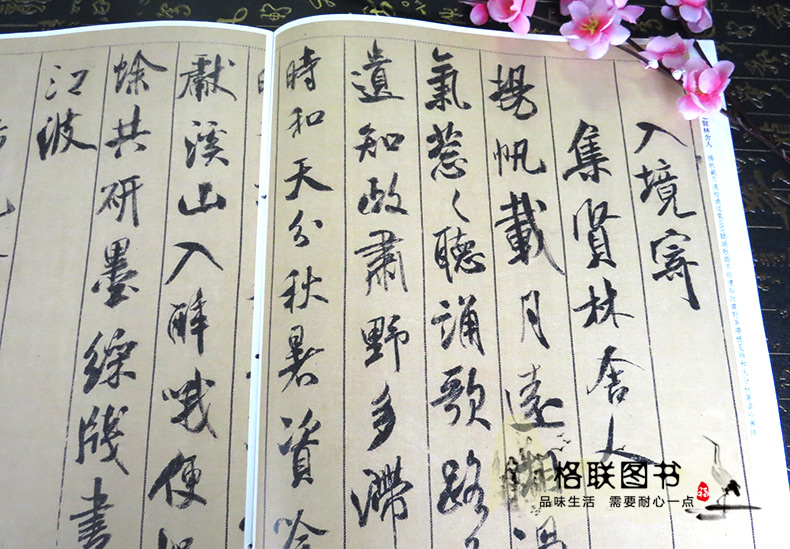 入境寄
集賢林舍人
揚帆載月遠過
氣葱々聽誦歌路
遺知政肅野多滯
時和天分秋暑資吟
獻溪山入醉哦便
蜍共研墨綵牋書
江波
賢林舍人
格联图书
品味生活 需要耐心一点